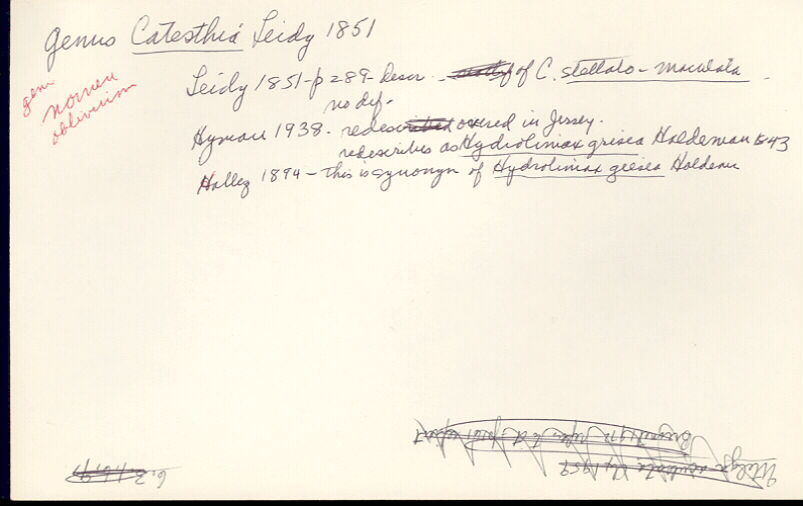 Genus Catesthia Leidy 1851
gen
nomen
oblivium
Leidy 1851-p 289- descr of C. stellato-maculata
no dif.
Hyman 1938. redescribed in Jersey.
redescribes as Hydrolimax grisea Haldeman 1843
Hallez 1894- This is synonym of Hydrolimax grisea Haldeman
1959